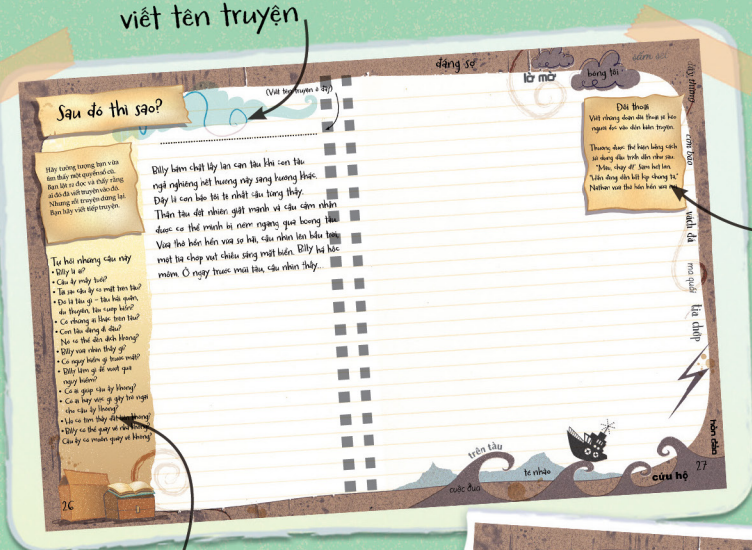 viết tên truyện
Sau đó thì sao?
(Viết tên truyện ở đây)
Hãy tưởng tượng bạn vừa
tìm thấy một quyển sổ cũ.
Bạn lật sổ đọc và thấy rằng
ai đó đã viết truyện vào đó.
Nhưng rồi truyện dừng lại.
Bạn hãy viết tiếp truyện.
Tự hỏi những câu này
• Billy là ai?
• Cậu ấy mấy tuổi?
• Tại sao cậu ấy có mặt trên tàu?
• Đó là tàu gì – tàu hải quân,
du thuyền, tàu cướp biển?
• Có những ai khác trên tàu?
• Con tàu đang đi đâu?
Nó có thể đến đích không?
• Billy vừa nhìn thấy gì?
• Có nguy hiểm gì trước mắt?
• Billy làm gì để vượt qua
nguy hiểm?
• Có ai giúp cậu ấy không?
• Có ai hay việc gì gây trở ngại
cho cậu ấy không?
• Họ có tìm thấy đất không?
• Billy có thể quay về nhà không?
Cậu ấy có muốn quay về không?
26
Billy bám chặt lấy lan can tàu khi con tàu
ngả nghiêng hết hướng này sang hướng khác.
Đây là cơn bão tồi tệ nhất cậu từng thấy.
Thân tàu đột nhiên giật mạnh và cậu cảm nhận
được cơ thể mình bị ném ngang qua boong tàu.
Vừa thở hổn hển vừa sợ hãi, cậu nhìn lên bầu trời,
một tia chớp vụt chiếu sáng mặt biển. Billy há hốc
mồm. Ở ngay trước mũi tàu, cậu nhìn thấy...
đáng sợ
lờ mờ
bóng tối
sấm sét
Đối thoại
Viết những đoạn đối thoại sẽ kéo
người đọc vào diễn biến truyện.
Thường được thể hiện bằng cách
sử dụng dấu trích dẫn như sau:
"Mau, chạy đi!" Sam hét lên.
"Hắn đang dần bắt kịp chúng ta,"
Nathan vừa thở hổn hển vừa
cơn bão
vách đá
ma quái
tia chớp
hòn đảo
trên tàu
cuộc đua
tẻ nhạo
cứu hộ
27